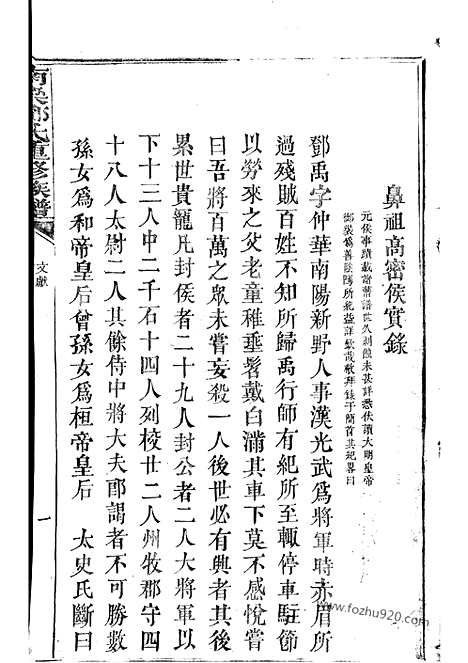 鼻祖高密侯實錄
元侯事蹟載諸舊譜世久剝蝕未甚詳悉伏讀大明皇帝
御製爲善陰隲所紀益詳欽敬拜錄于簡首其祀畧曰
鄧禹字仲華南陽新野人事漢光武爲將軍時赤眉所
過殘賊百姓不知所歸禹行師有紀所至輒停車駐節
以勞來之父老童稚垂髫戴白滿其車下莫不感悅嘗
曰吾將百萬之眾未嘗妄殺一人後世必有興者其後
累世貴寵凡封侯者二十九人封公者二人大將軍以
下十三人中二千石十四人列校廿二人州牧郡守四
十八人太尉二人其餘侍中將大夫郎謁者不可勝數
孫女爲和帝皇后曾孫女爲桓帝皇后 太史氏斷曰
氏重修族譜
文獻
一
www.fozhu920.com